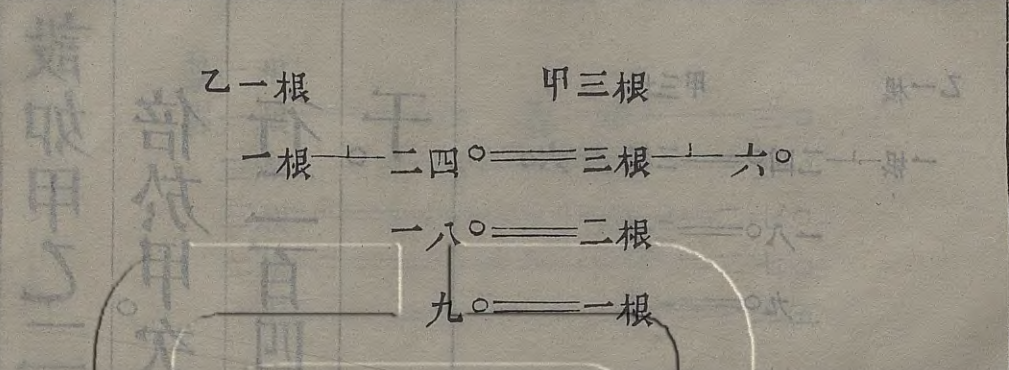 乙一根 甲三根
一根⊥二四〇＝三根⊥六〇
一八〇＝二根
九〇＝一根